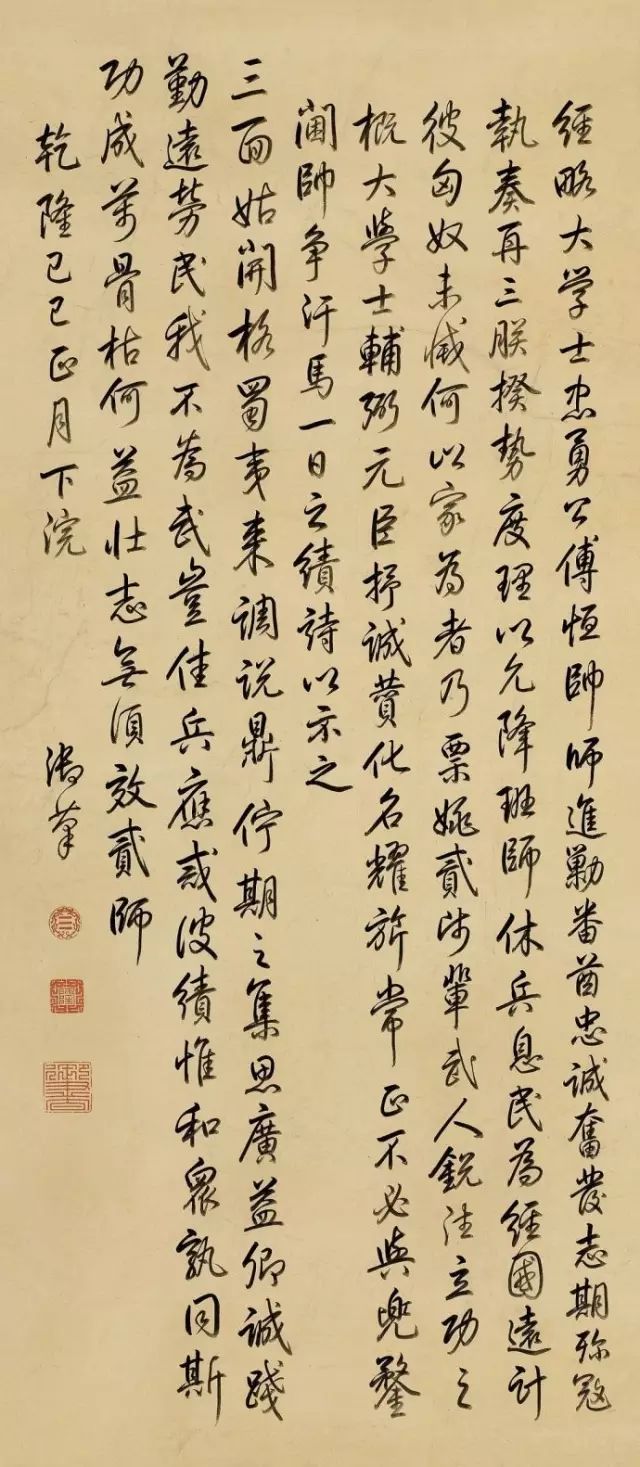 經略大学士忠勇公傅恒帥師進勦番酋忠誠奮發志期殄寇
執奏再三朕揆勢度理以允降班師休兵息民為經國遠計
彼匈奴未滅何以家為者乃票姚貳师輩武人銳往立功之
概大學士輔弼元臣抒誠贊化名耀旂常正不必與兜鍪
閫帥争汗馬一日之績詩以示之
三面姑開格蜀夷来調説鼎佇期之集思廣益卿誠踐
勤遠勞民我不為武豈佳兵應戒彼績惟和衆孰同斯
功成萬骨枯何益壯志無須效貳師
乾隆己巳正月下浣
御筆